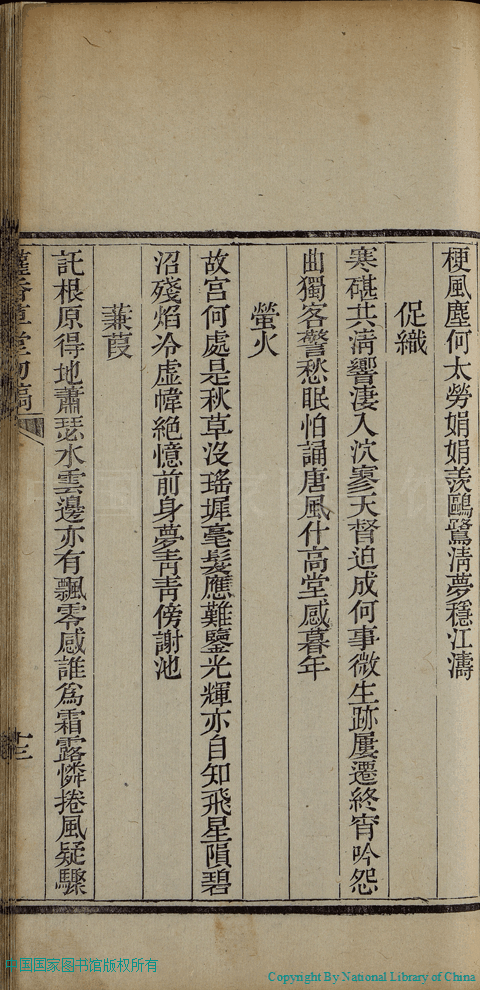 梗風塵何太勞娟娟羨鷗鷺清夢穩江濤
促織
寒碪共清響淒入泬寥天督迫成何事微生跡屢遷終宵吟怨
曲獨客警愁眠怕誦唐風什高堂感暮年
螢火
故宮何處是秋草沒瑤墀毫髮應難鑒光輝亦自知飛星隕碧
沼殘焰冷虛幃絕憶前身夢靑靑傍謝池
蒹葭
託根原得地蕭瑟水雲邊亦有飄零感誰為霜露憐捲風疑驟
香草堂初稿
十三
中国国家图书馆版权所有
Copyright By National Library of China